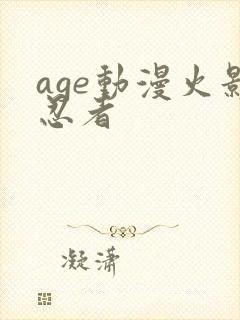 age動漫火影
忍者
凝瀟